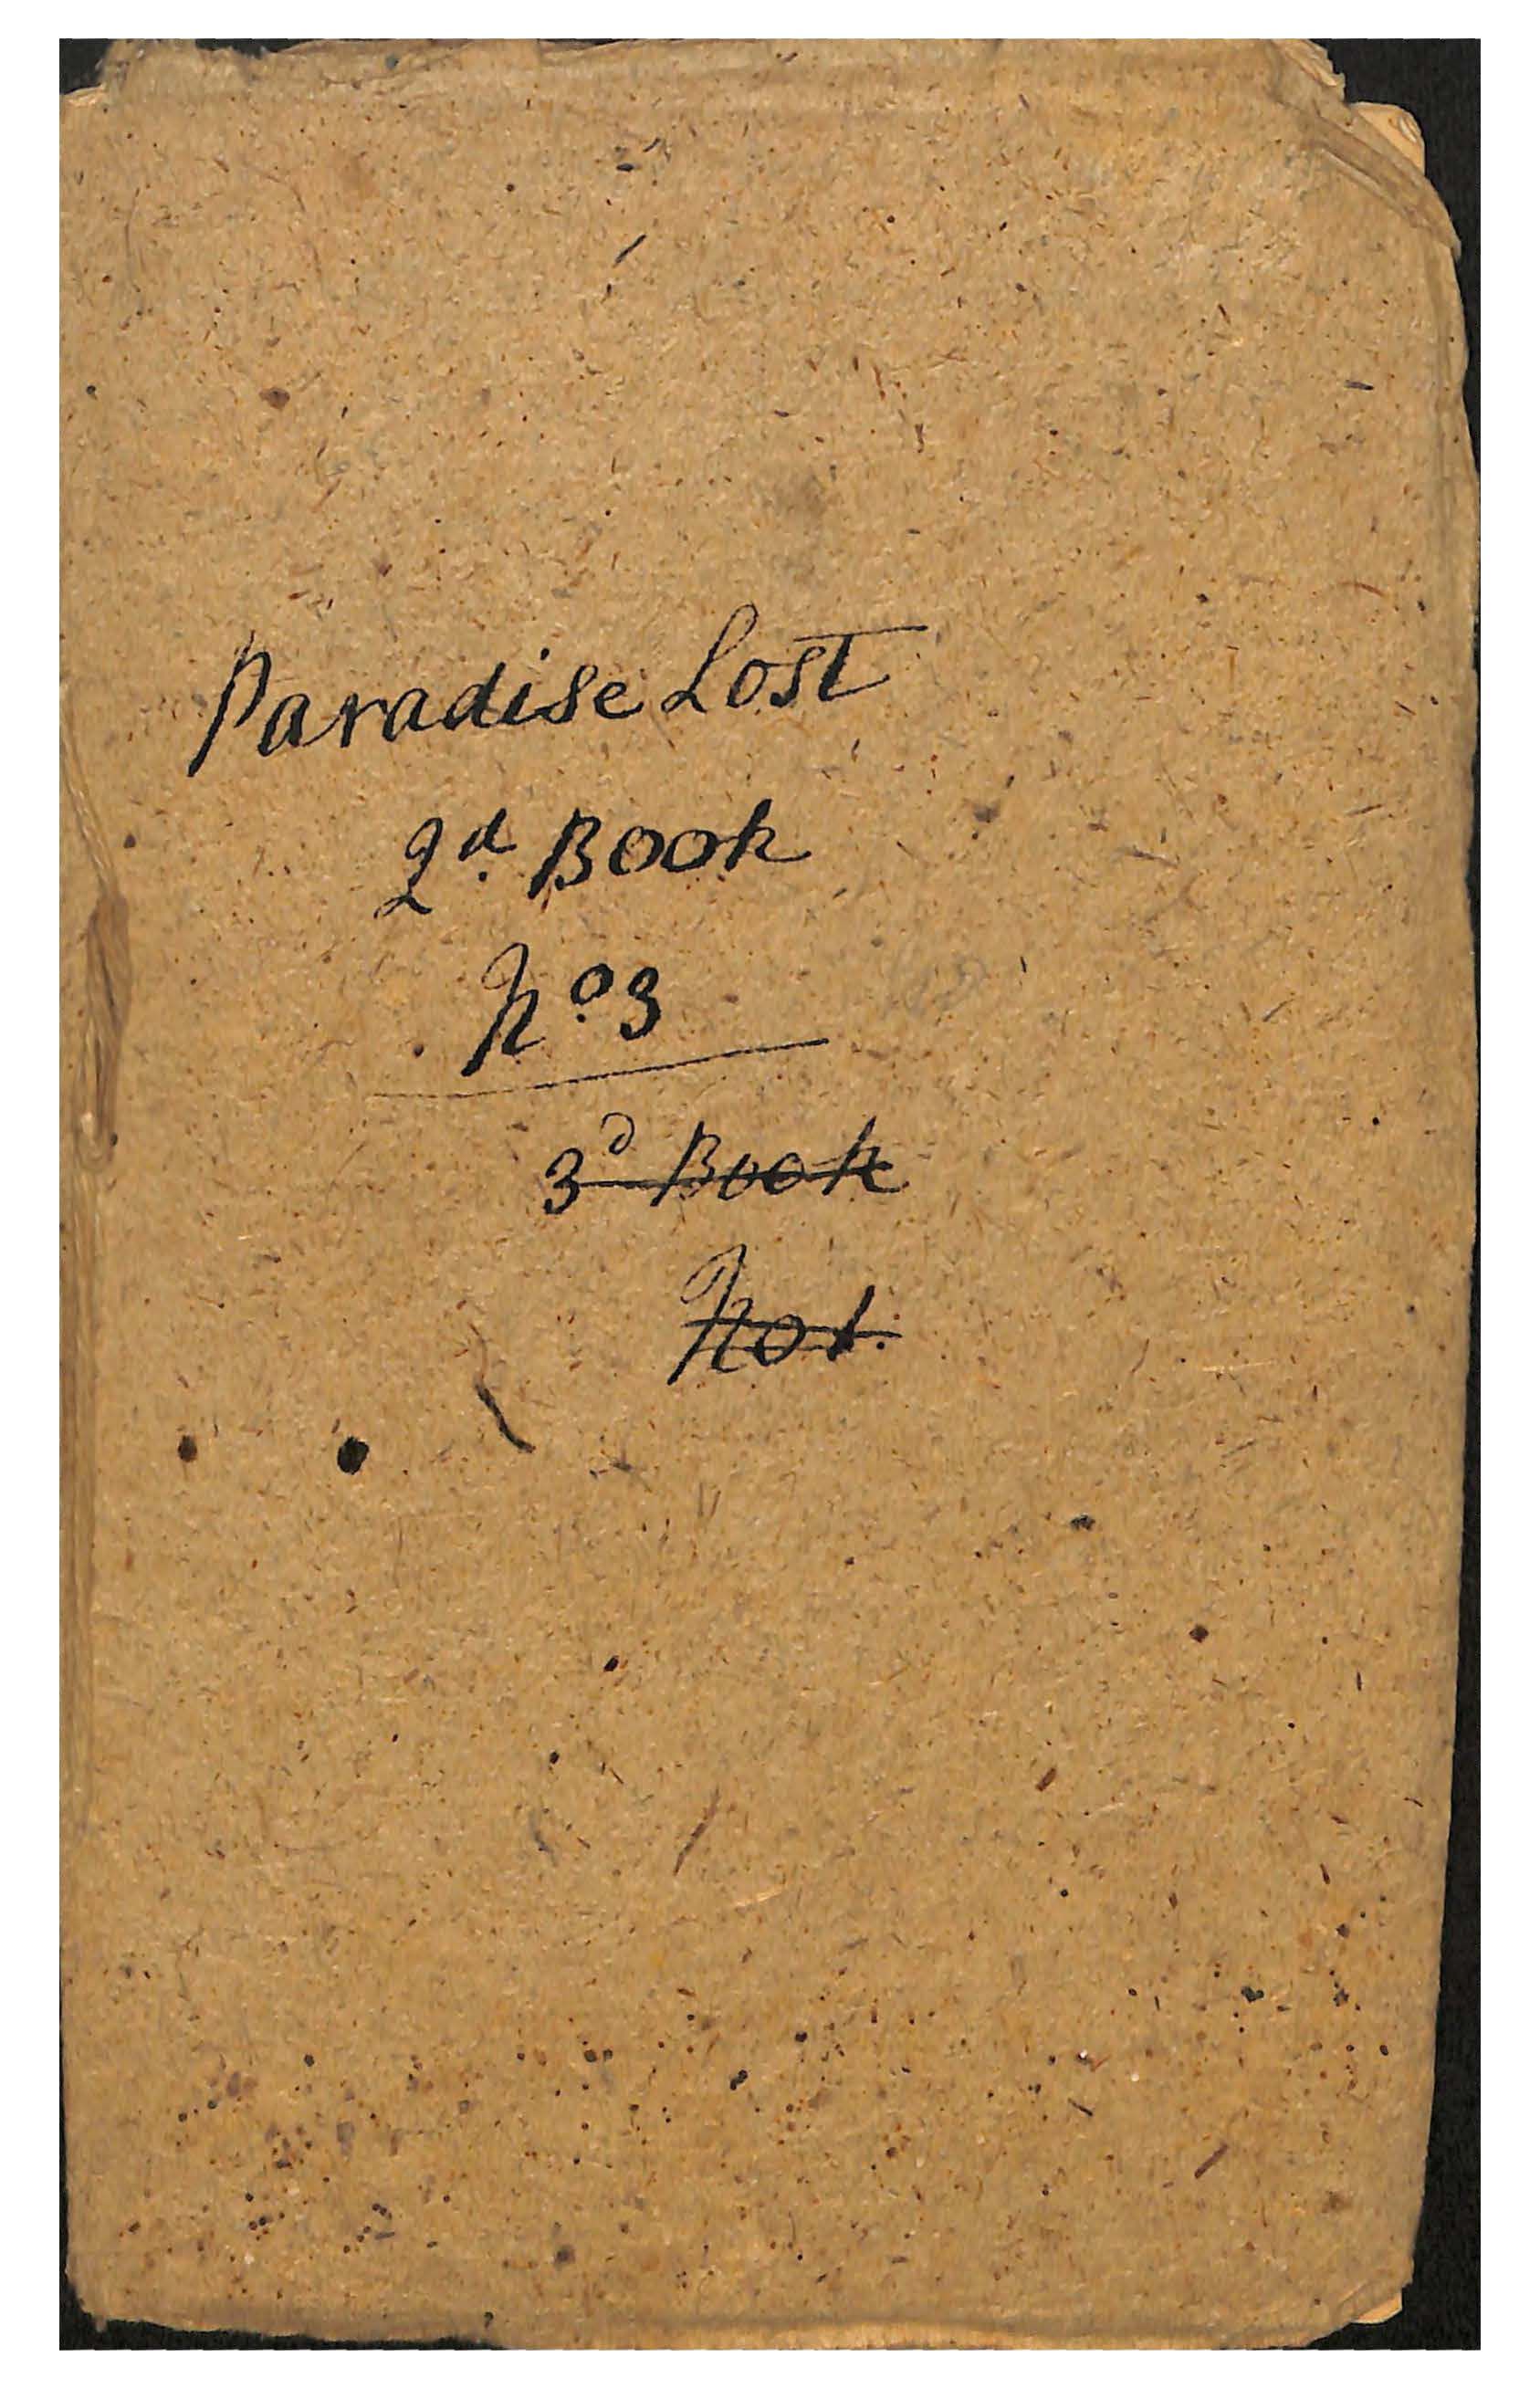 Paradise Lost
2d. Book
No 3
3d Book
No 1.